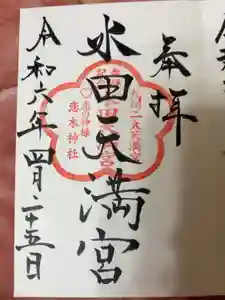 奉拝
水田天満宮
恋の神様
恋木神社
令和六年四月二十五日